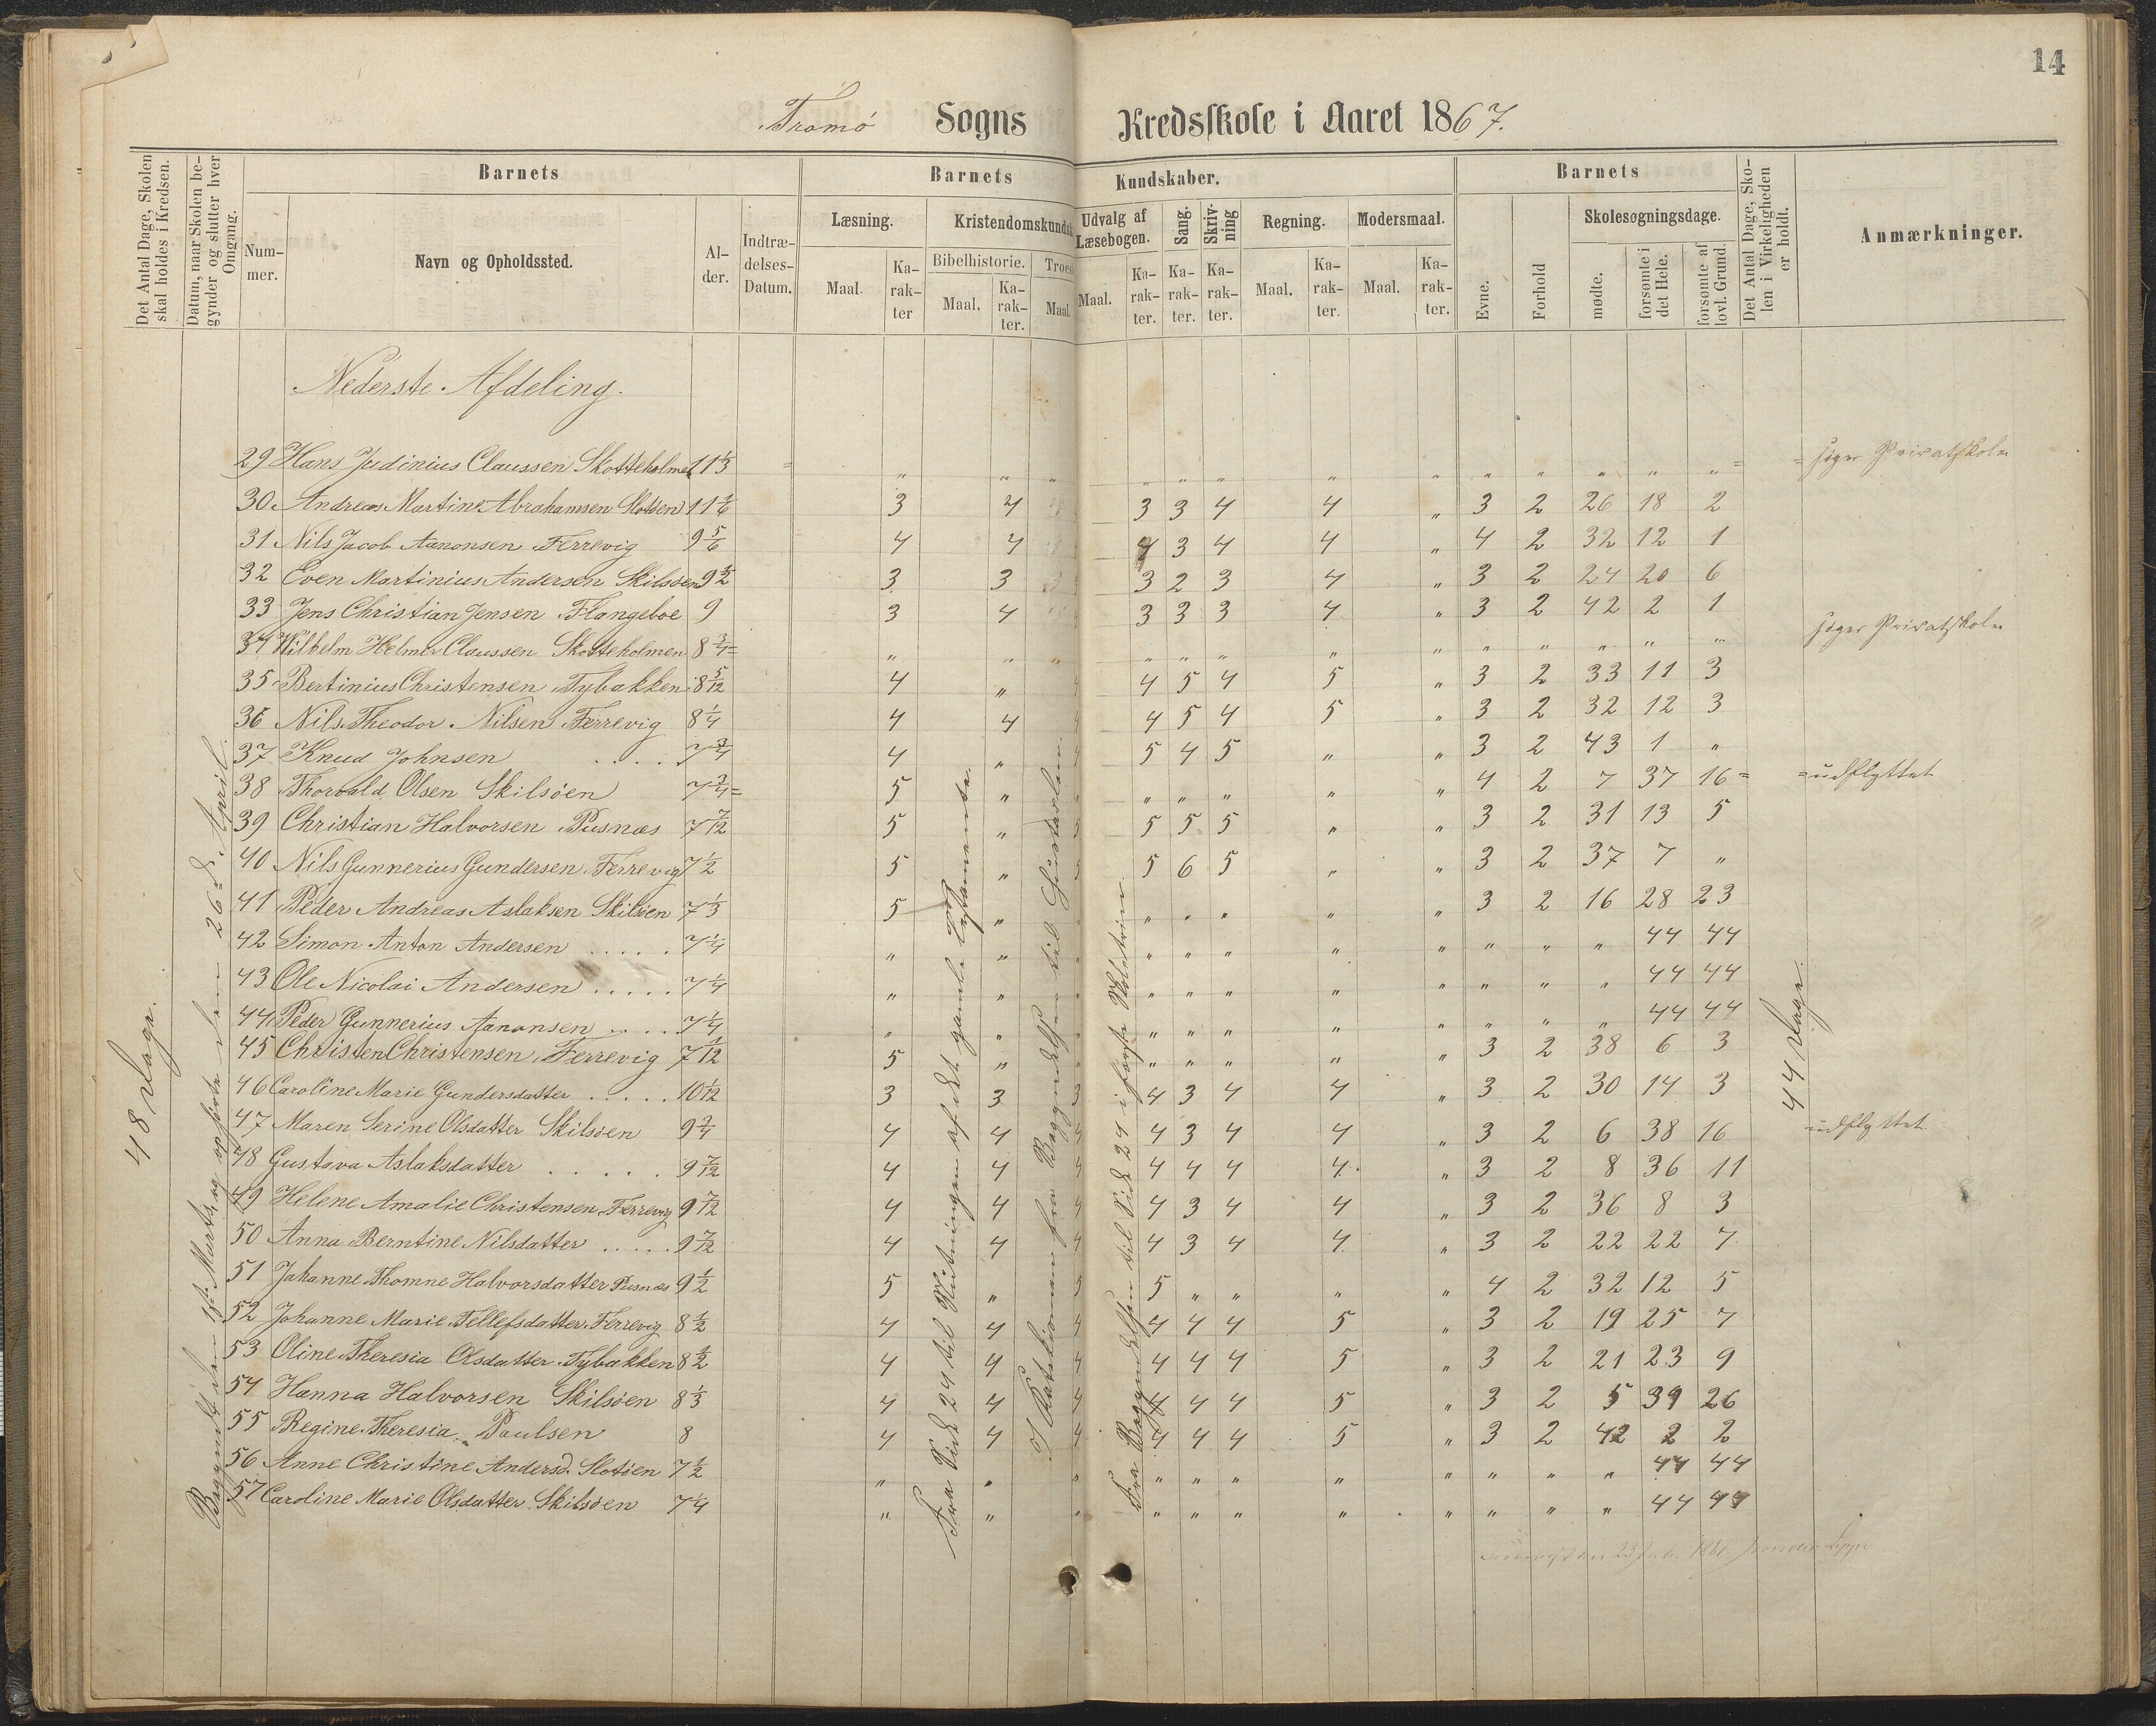 14
Tromø Sogns Kredsskole i Aaret 1867.
Det Antal Dage, Skolen skal holdes i Kredsen.
Datum, naar Skolen begynder og slutter hver Omgang.
Barnets
Barnets Kundskaber.
Barnets
Det Antal Dage, Skolen i Virkeligheden er holdt.
Anmærkninger.
Nummer.
Navn og Opholdssted.
Alder.
Indtrædelses-Datum.
Læsning.
Kristendomskundsk
Udvalg af Læsebogen.
Sang.
Skrivning
Regning.
Modersmaal.
Evne.
Forhold
Skolesøgningsdage.
Bibelhistorie.
Troes
mødte.
forsømte i det Hele.
forsømte af lovl. Grund.
Maal.
Karakter
Maal.
Karakter.
Maal.
Maal.
Karakter.
Karakter.
Karakter.
Maal.
Karakter.
Maal.
Karakter.
Nederste Afdeling.
29 Hans Judinius Claussen Skotteholmen 11 1/3 = " " " " " " " " " " " " " = = søger Privatskolen
30 Andreas Martin Abrahamsen Slotøen 11 1/6 3 4 3 3 4 4 " 3 2 26 18 2
31 Nils Jacob Aanonsen Færrevig 9 5/6 4 4 4 3 4 4 " 4 2 32 12 1
32 Even Martinius Andersen Skilsøen 9 1/2 3 3 3 2 3 4 " 3 2 24 20 6
33 Jens Christian Jensen Flangeboe 9 3 4 3 3 3 4 " 3 2 42 2 1
34 Wilhelm Helmer Claussen Skotteholmen 8 3/4 = " " " " " " " " " " " " " søger Privatskolen
35 Bertinius Christensen Tybakken 8 5/12 4 " 4 4 5 4 5 " 3 2 33 11 3
36 Nils Theodor Nilsen Færrevig 8 1/4 4 4 4 4 5 4 5 " 3 2 32 12 3
37 Knud Johnsen . . . . 7 3/4 4 " 4 5 4 5 " " 3 2 43 1 "
38 Thorvald Olsen Skilsöen 7 3/4 = 5 " " " " " " " 4 2 7 37 16 = = udflyttet
39 Christian Halvorsen Pusnæs 7 7/12 5 " 5 5 5 5 " " 3 2 31 13 5
40 Nils Gunnerius Gundersen Færrevig 7 1/2 5 " 5 5 6 5 " " 3 2 37 7 "
41 Peder Andreas Aslaksen Skilsöen 7 1/3 5 " " " " " " " 3 2 16 28 23
42 Simon Anton Andersen . . . . . 7 1/4 " " " " " " " " " " " 44 44
43 Ole Nicolai Andersen . . . . . 7 1/4 " " " " " " " " " " " 44 44
44 Peder Gunnerius Aanonsen . . . . 7 1/4 " " " " " " " " " " " 44 44
45 Christen Christensen Færrevig 7 1/12 5 " " " " " " " 3 2 38 6 3
46 Caroline Marie Gundersdatter . . . . . 10 1/12 3 3 3 4 3 4 4 " 3 2 30 14 3
47 Maren Serine Olsdatter Skilsøen 9 3/4 4 4 4 4 3 4 4 " 3 2 6 38 16 udflyttet
48 Gustava Aslaksdatter . . . . . 9 7/12 4 4 4 4 4 4 4. " 3 2 8 36 11
49 Helene Amalie Christensen Færrevig 9 7/12 4 4 4 4 3 4 4 " 3 2 36 8 3
50 Anna Berntine Nilsdatter . . . . . 9 7/12 4 4 4 4 3 4 4. " 3 2 22 22 7
51 Johanne Thomine Halvorsdatter Pusnæs 9 1/2 5 " 5 5 " " " " 4 2 32 12 5
52 Johanne Marie Tellefsdatter Færrevig 8 1/2 4 4 4 4 4 4 5 " 3 2 19 25 7
53 Oline Theresia Olsdatter Tybakken 8 1/2 4 4 4 4 4 4 5 " 3 2 21 23 9
54 Hanna Halvorsen Skilsöen 8 1/3 4 4 4 4 4 4 5 " 3 2 5 39 26
55 Regine Theresia Paulsen 8 4 4 4 4 4 4 5 " 3 2 42 2 2
56 Anne Christine Andersd. Slotøen 7 1/2 " " " " " " " " " " " 44 44
57 Caroline Marie Olsdatter Skilsøen 7 1/4 " " " " " " " " " " " 44 44
48 Dage.
Begyndt den 1ste Marts, og ophørte den 26de April.
Fra Side 24 til Slutningen af det gamle Testamente.
I Katekismen fra Begyndelsen til Huustavlen.
Fra Begyndelsen til Side 24 i første Skoletrin.
44 Dage.